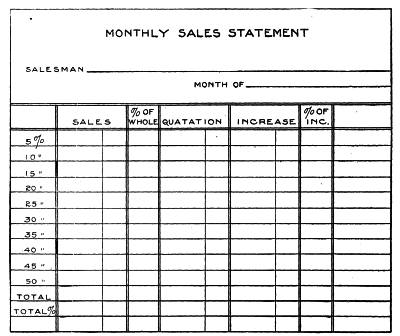 MONTHLY SALES STATEMENT
SALESMAN
MONTH OF
SALES % OF WHOLE QUATATION INCREASE % OF INC.
5%
10 "
15 "
20 "
25 "
30 "
35 "
40 "
45 "
50 "
TOTAL
TOTAL%